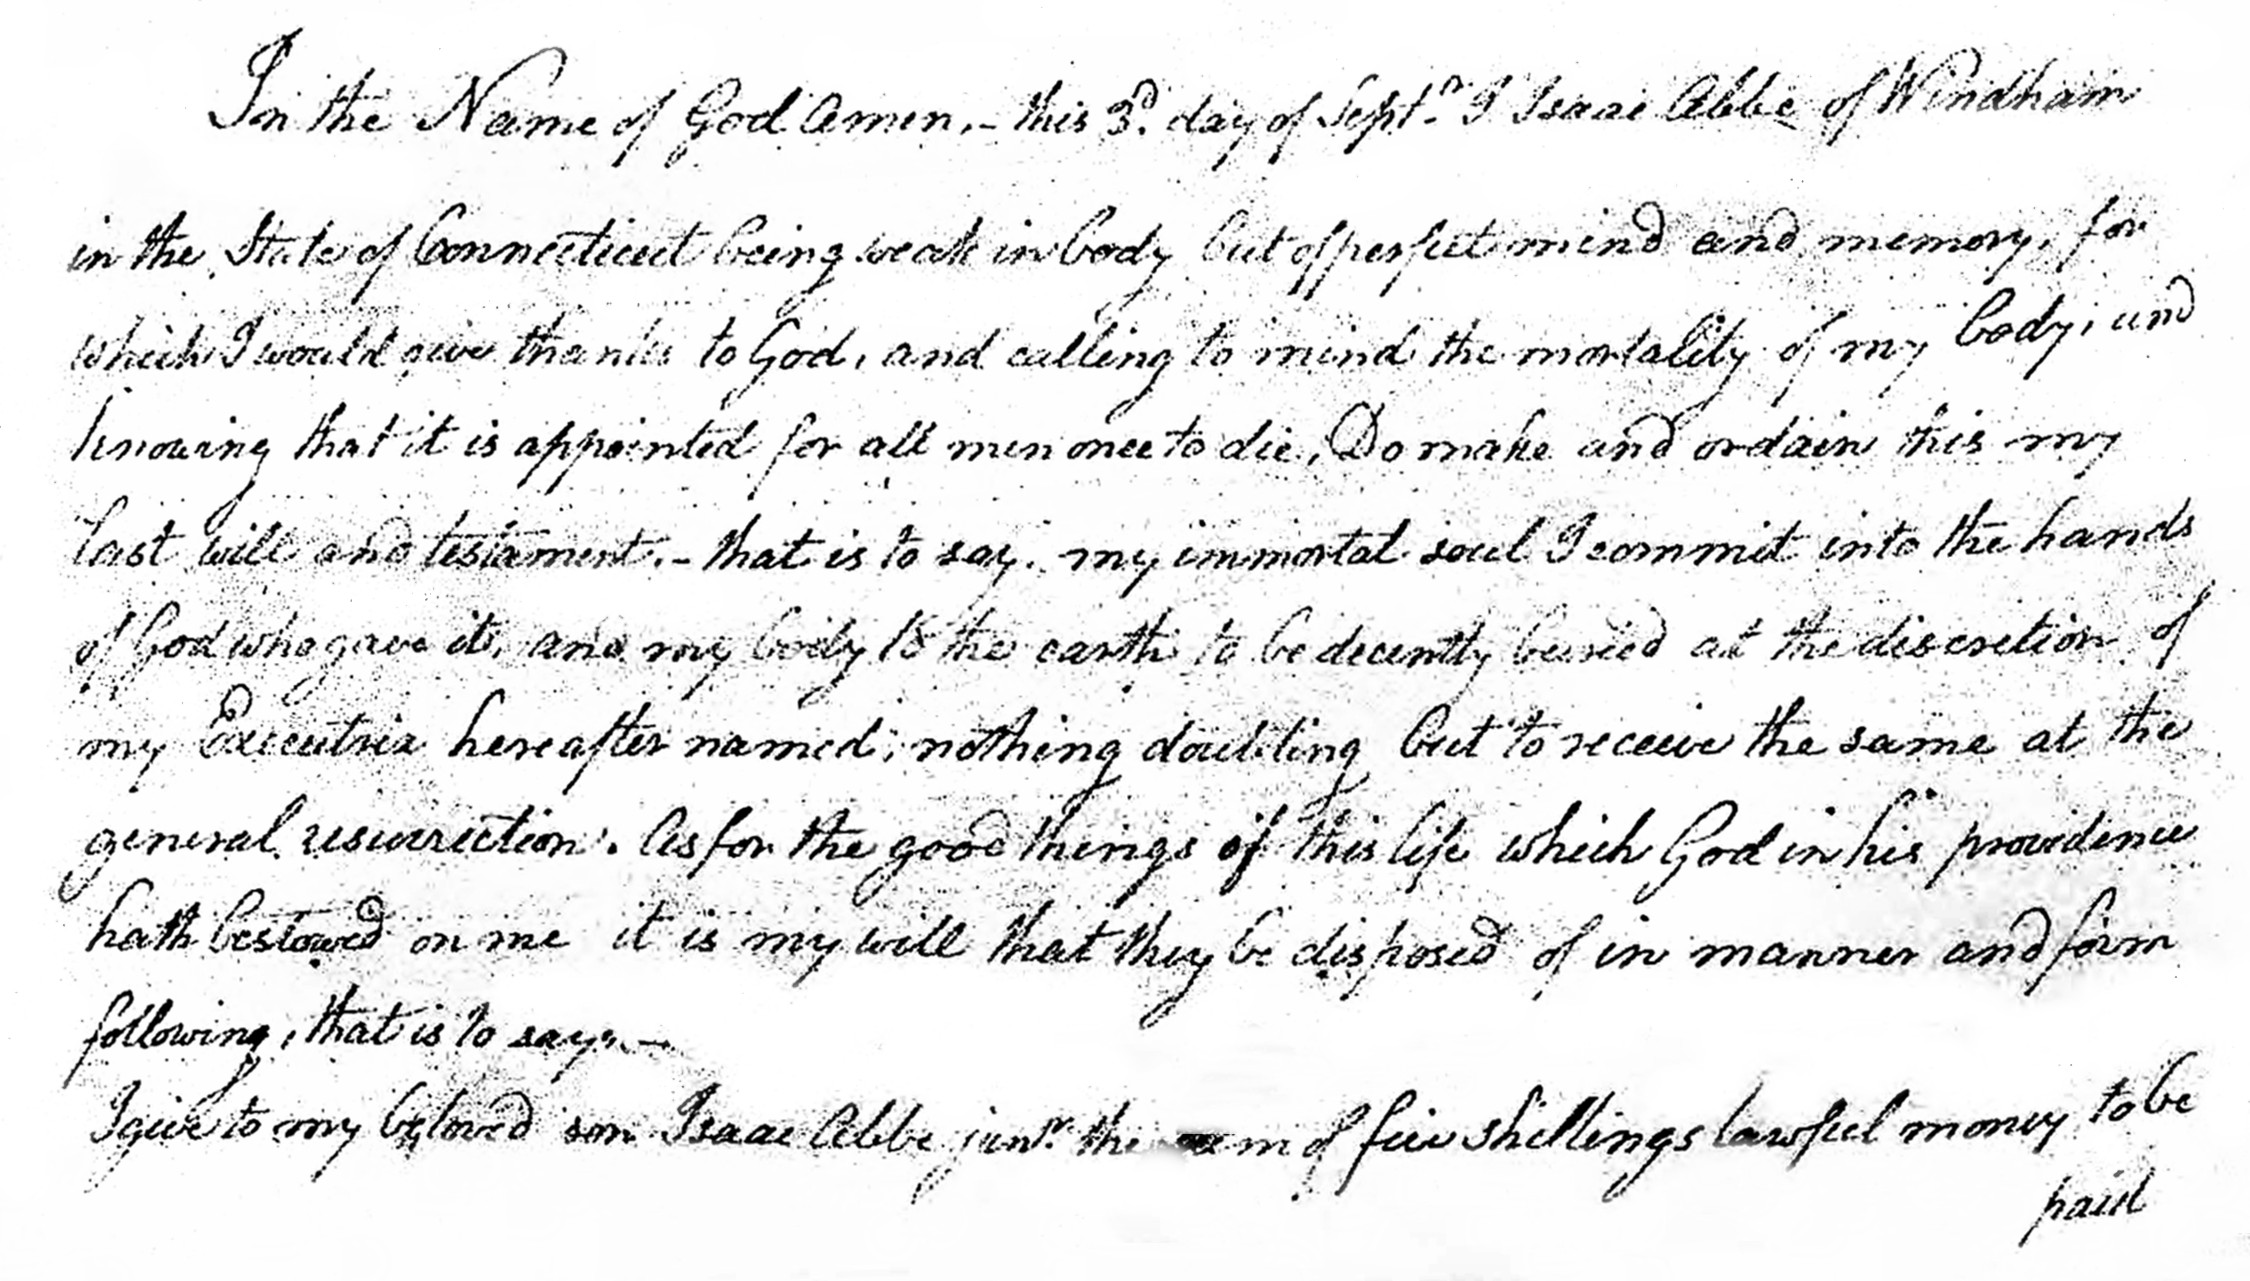 In the Name of God Amen.- this 3d. day of Septr. I Isaac Abbe of Windham
in the State of Connecticut being weak in body but of perfect mind and memory, for
which I would give thanks to God, and calling to mind the mortality of my body; and
knowing that it is appointed for all men once to die, Do make and ordain this my
last will and testament.- that is to say. my immortal soul I commit into the hands
of God who gave it, and my body to the earth to be decently buried at the discretion of
my Executrix hereafter named; nothing doubting but to receive the same at the
general resurrection. As for the good things of this life which God in his providence
hath bestowed on me it is my will that they be disposed of in manner and form
following, that is to say,-
I give to my beloved son Isaac Abbe junr. the sum of five shillings lawful money to be
paid